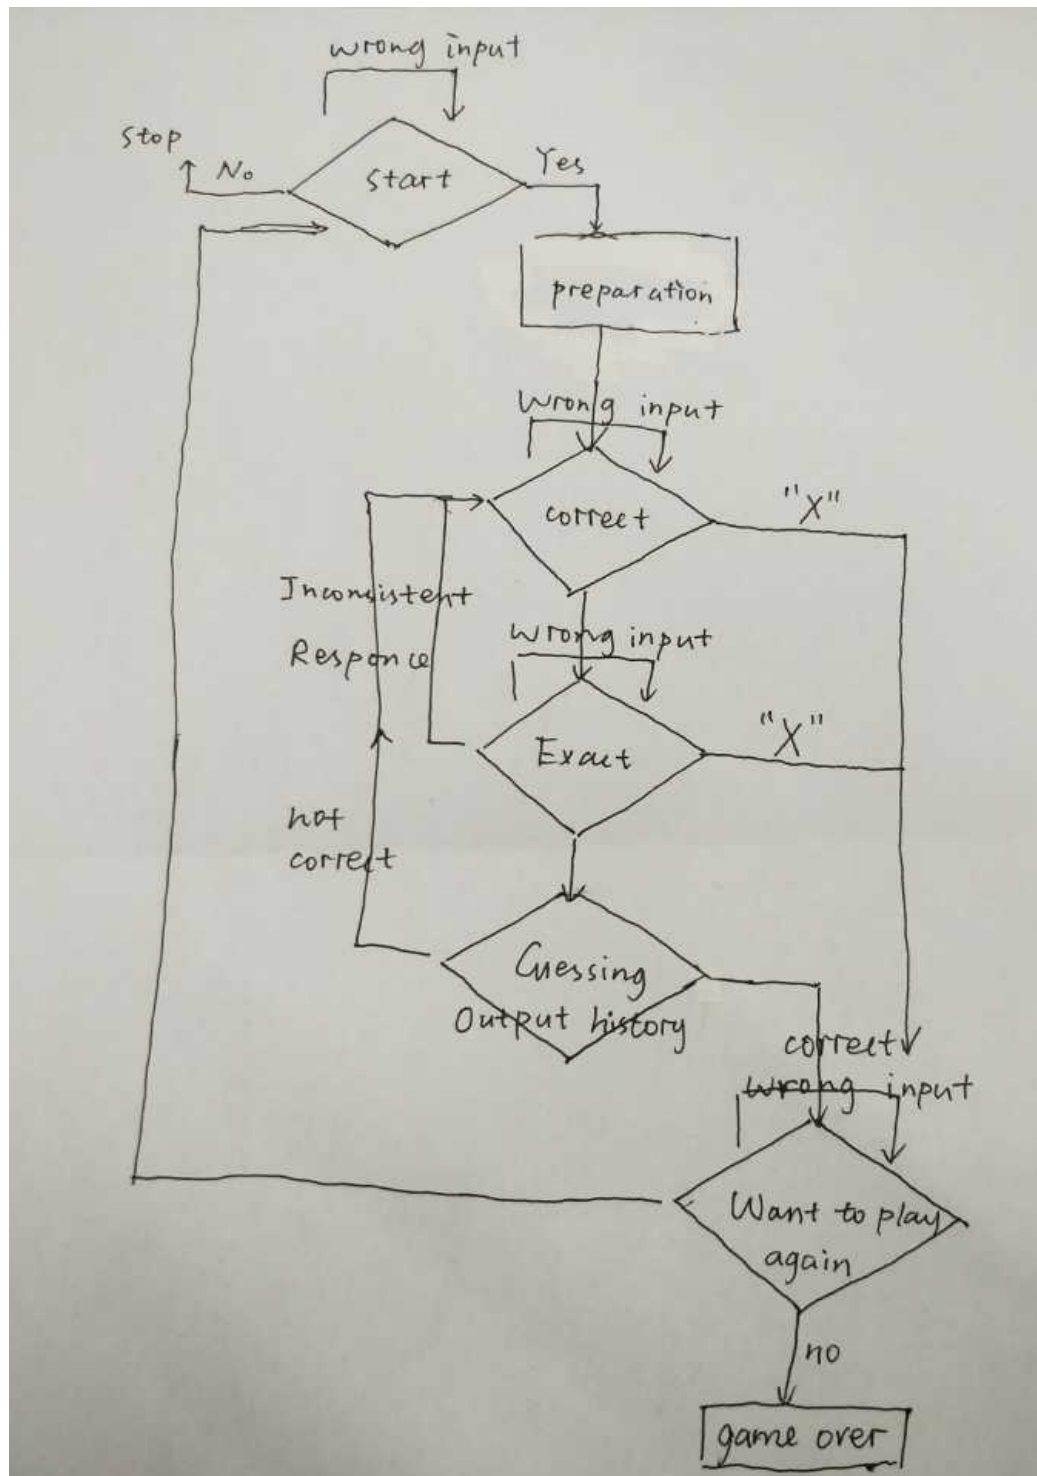 wrong input
Stop
No
Start
Yes
preparation
Wrong input
correct
"X"
Inconsistent
Responce
Wrong input
Exact
"X"
not
correct
Guessing
Output history
correct
wrong input
Want to play
again
no
game over